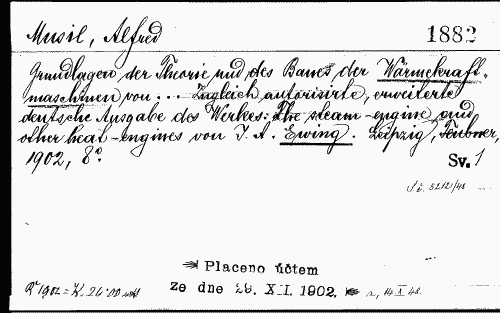 Musil, Alfred 1882
Grundlagen der Theorie und des Baues der Wärmekraft-
maschinen von ... Zugleich autorisirte, erweiterte
deutsche Ausgabe des Werkes: The steam-engine and
other heat-engines von J. A. Ewing. Leipzig, Teubner,
1902, 8°
Sv. 1
Placeno účtem
1902 = K. 24·00
ze dne 29. XII. 1902.